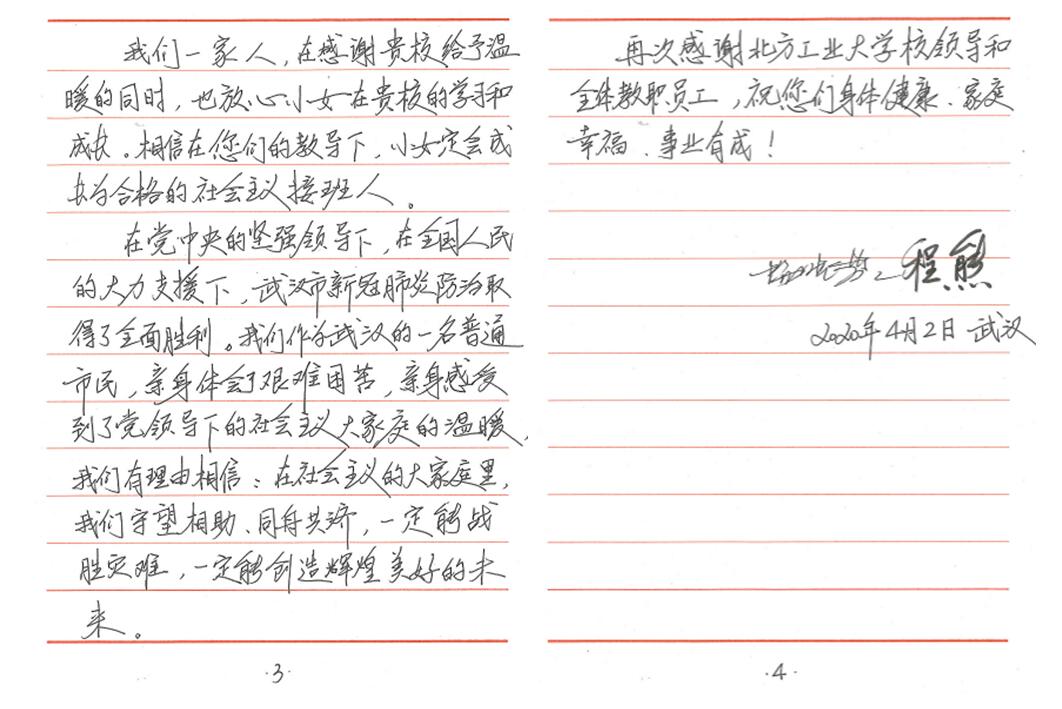 我们一家人，在感谢贵校给予温
暖的同时，也放心小女在贵校的学习和
成长。相信在您们的教导下，小女定会成
长为合格的社会主义接班人。
在党中央的坚强领导下，在全国人民
的大力支援下，武汉市新冠肺炎防治取
得了全面胜利。我们作为武汉的一名普通
市民，亲身体会了艰难困苦，亲身感受
到了党领导下的社会主义大家庭的温暖，
我们有理由相信：在社会主义的大家庭里，
我们守望相助、同舟共济，一定能战
胜灾难，一定能创造辉煌美好的未
来。
·3·
再次感谢北方工业大学校领导和
全体教职员工，祝您们身体健康、家庭
幸福、事业有成！
程熊
2020年4月2日 武汉
·4·